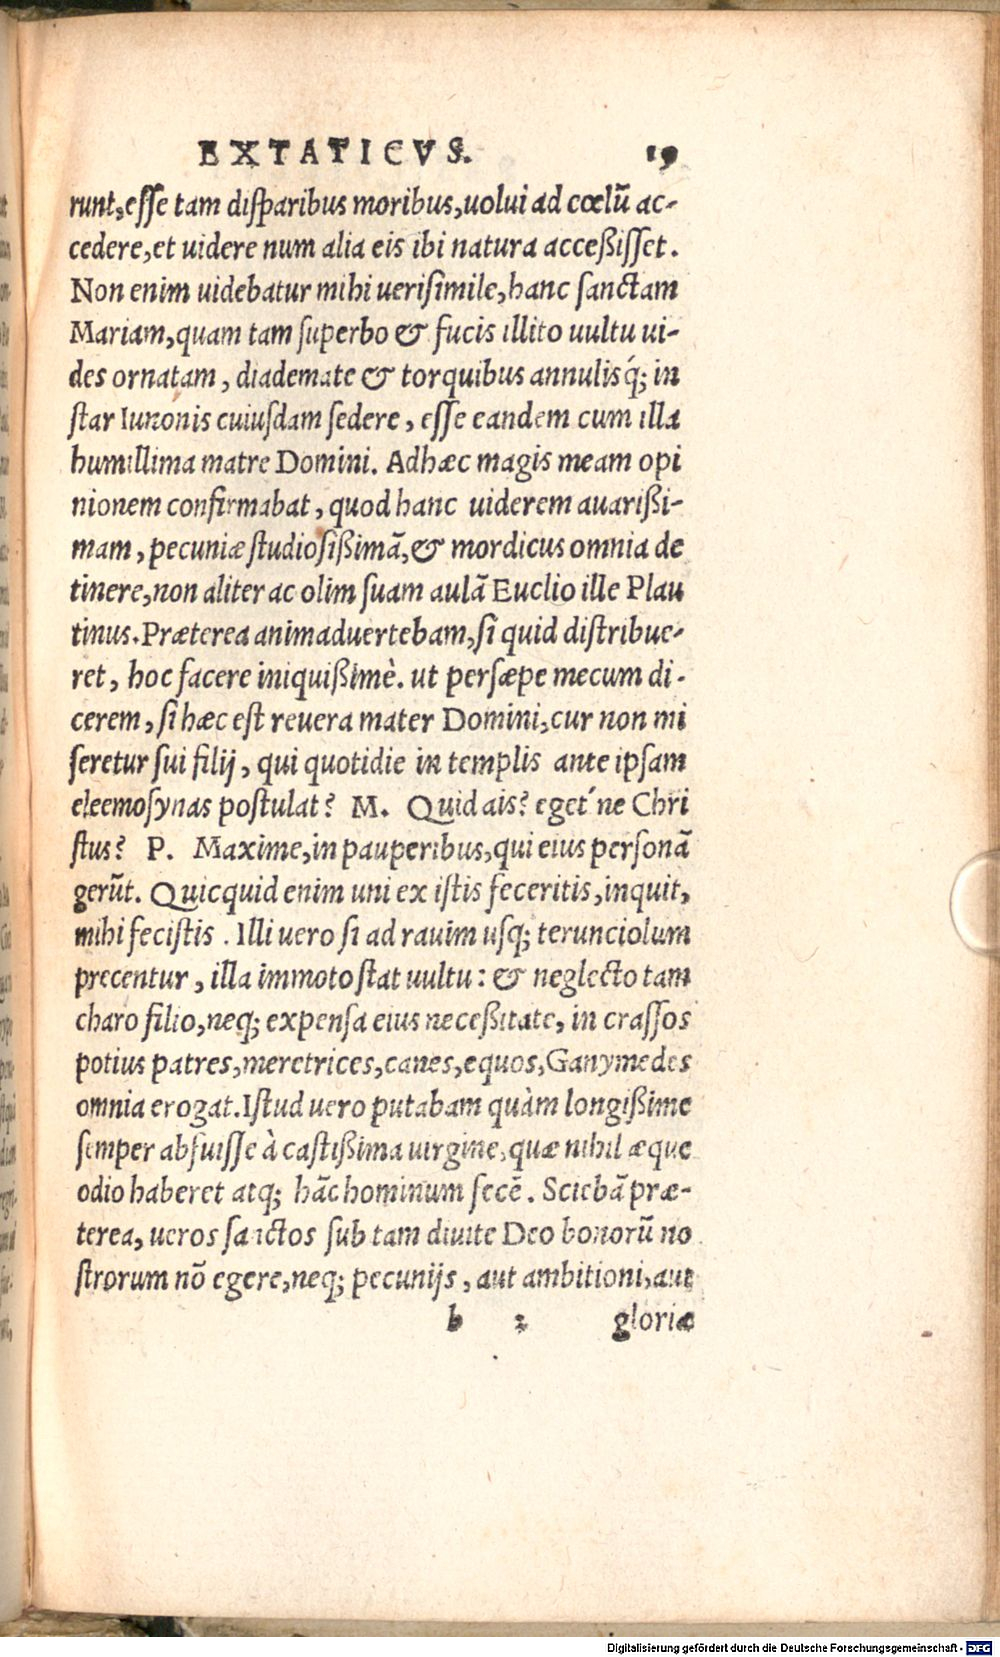 EXTATICVS. 19
runt, esse tam disparibus moribus, uolui ad cœlū ac-
cedere, et uidere num alia eis ibi natura acceßisset.
Non enim uidebatur mihi uerisimile, hanc sanctam
Mariam, quam tam superbo & fucis illito uultu ui-
des ornatam, diademate & torquibus annulisq́; in
star Iunonis cuiusdam sedere, esse eandem cum illa
humillima matre Domini. Adhæc magis meam opi
nionem confirmabat, quod hanc uiderem auarißi-
mam, pecuniæ studiosißimā, & mordicus omnia de
tinere, non aliter ac olim suam aulā Euclio ille Plau
tinus. Præterea animaduertebam, si quid distribue-
ret, hoc facere iniquißimè. ut persæpe mecum di-
cerem, si hæc est reuera mater Domini, cur non mi
seretur sui filij, qui quotidie in templis ante ipsam
eleemosynas postulat? M. Quid ais? eget́ ne Chri
stus? P. Maxime, in pauperibus, qui eius personā
gerūt. Quicquid enim uni ex istis feceritis, inquit,
mihi fecistis. Illi uero si ad rauim usq; terunciolum
precentur, illa immoto stat uultu: & neglecto tam
charo filio, neq; expensa eius neceßitate, in crassos
potius patres, meretrices, canes, equos, Ganymedes
omnia erogat. Istud uero putabam quàm longißime
semper abfuisse à castißima uirgine, quæ nihil æque
odio haberet atq; hāc hominum fecē. Sciebā præ-
terea, ueros sanctos sub tam diuite Deo bonorū no
strorum nō egere, neq; pecunijs, aut ambitioni, aut
b 2 gloriæ
Digitalisierung gefördert durch die Deutsche Forschungsgemeinschaft - DFG